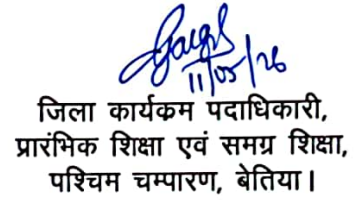 11/05/26
जिला कार्यक्रम पदाधिकारी,
प्रारंभिक शिक्षा एवं समग्र शिक्षा,
पश्चिम चम्पारण, बेतिया।